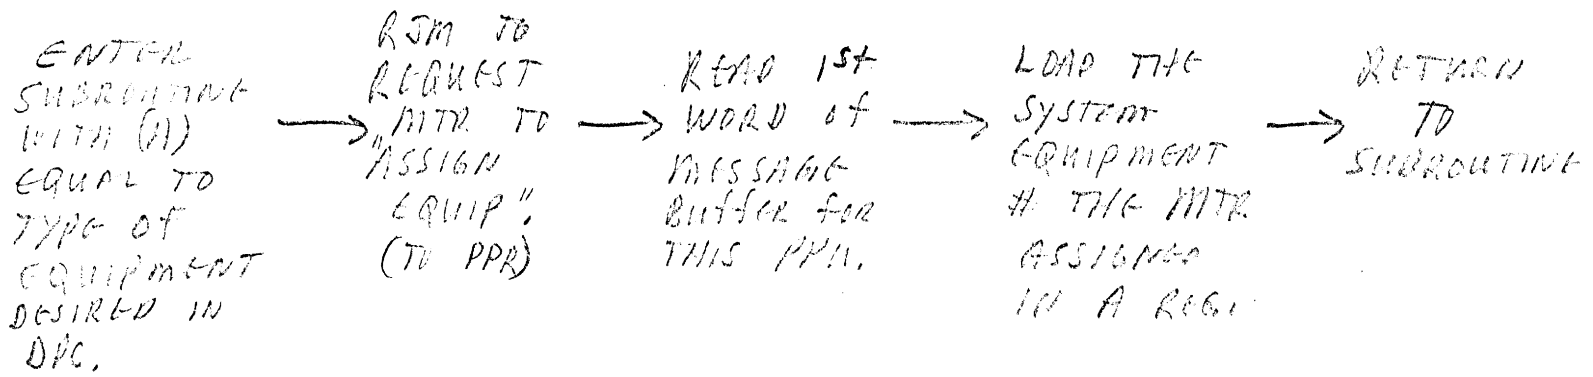 ENTER
SUBROUTINE
WITH (A)
EQUAL TO
TYPE OF
EQUIPMENT
DESIRED IN
DPC.
RJM TO
REQUEST
MTR TO
"ASSIGN
EQUIP".
(TO PPR)
READ 1st
WORD of
MESSAGE
Buffer for
THIS PPU.
LOAD THE
SYSTEM
EQUIPMENT
# THE MTR
ASSIGNED
IN A REG.
RETURN
TO
SUBROUTINE